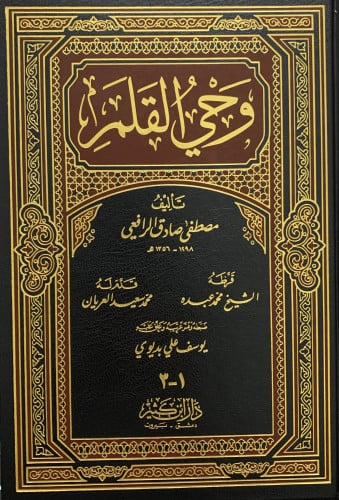 وَحْيُ القَلَمِ
تأليف
مصطفى صادق الرافعي
١٢٩٨ - ١٣٥٦ هـ
قرظه
قدم له
الشيخ محمد عبده
محمد سعيد العريان
ضبطه وفهرسه وعلق عليه
يوسف علي بديوي
١-٣
دار ابن كثير
دمشق - بيروت